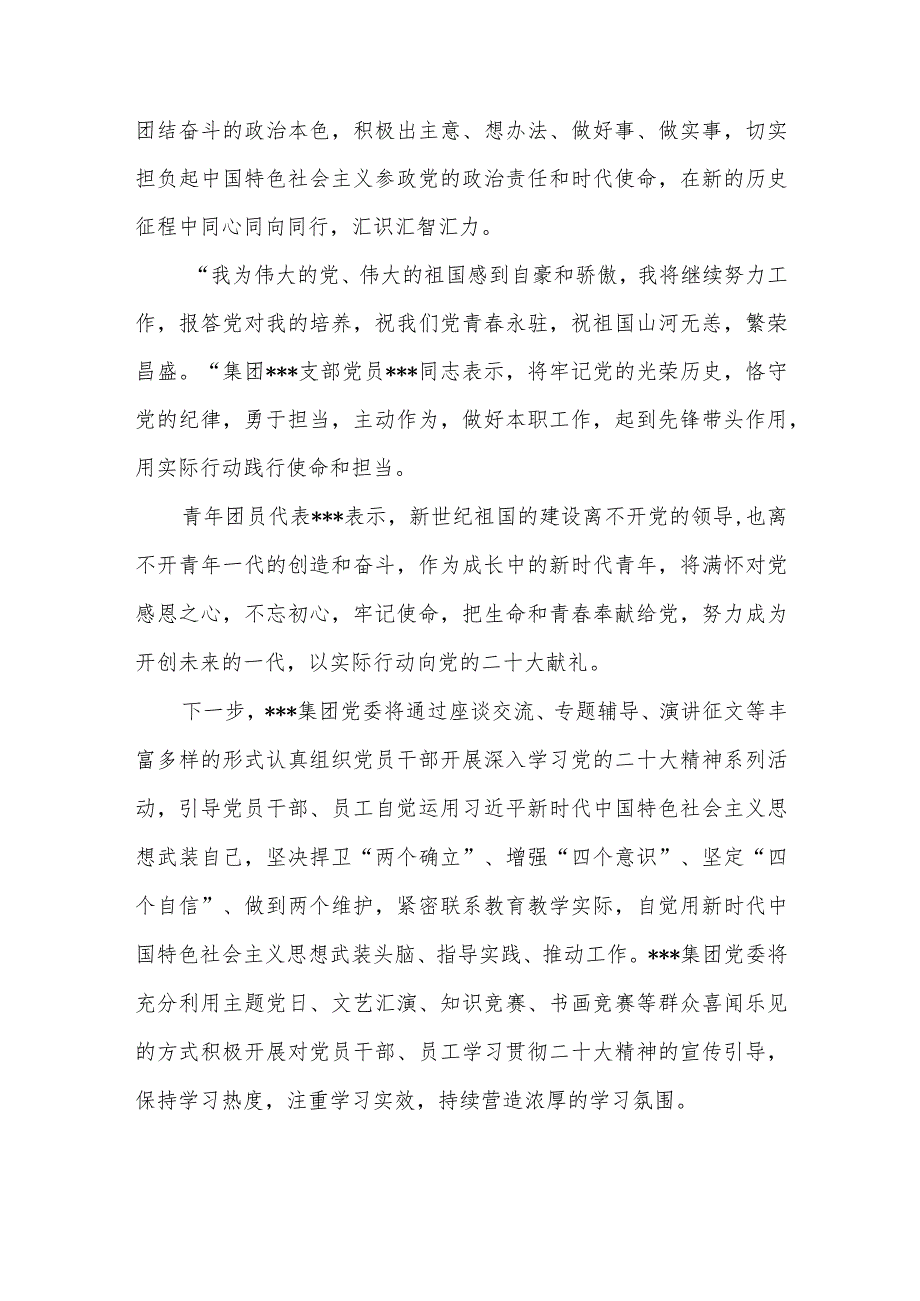 团结奋斗的政治本色，积极出主意、想办法、做好事、做实事，切实
担负起中国特色社会主义参政党的政治责任和时代使命，在新的历史
征程中同心同向同行，汇识汇智汇力。
“我为伟大的党、伟大的祖国感到自豪和骄傲，我将继续努力工
作，报答党对我的培养，祝我们党青春永驻，祝祖国山河无恙，繁荣
昌盛。“集团***支部党员***同志表示，将牢记党的光荣历史，恪守
党的纪律，勇于担当，主动作为，做好本职工作，起到先锋带头作用，
用实际行动践行使命和担当。
青年团员代表***表示，新世纪祖国的建设离不开党的领导,也离
不开青年一代的创造和奋斗，作为成长中的新时代青年，将满怀对党
感恩之心，不忘初心，牢记使命，把生命和青春奉献给党，努力成为
开创未来的一代，以实际行动向党的二十大献礼。
下一步，***集团党委将通过座谈交流、专题辅导、演讲征文等丰
富多样的形式认真组织党员干部开展深入学习党的二十大精神系列活
动，引导党员干部、员工自觉运用习近平新时代中国特色社会主义思
想武装自己，坚决捍卫“两个确立”、增强“四个意识”、坚定“四
个自信”、做到两个维护，紧密联系教育教学实际，自觉用新时代中
国特色社会主义思想武装头脑、指导实践、推动工作。***集团党委将
充分利用主题党日、文艺汇演、知识竞赛、书画竞赛等群众喜闻乐见
的方式积极开展对党员干部、员工学习贯彻二十大精神的宣传引导，
保持学习热度，注重学习实效，持续营造浓厚的学习氛围。